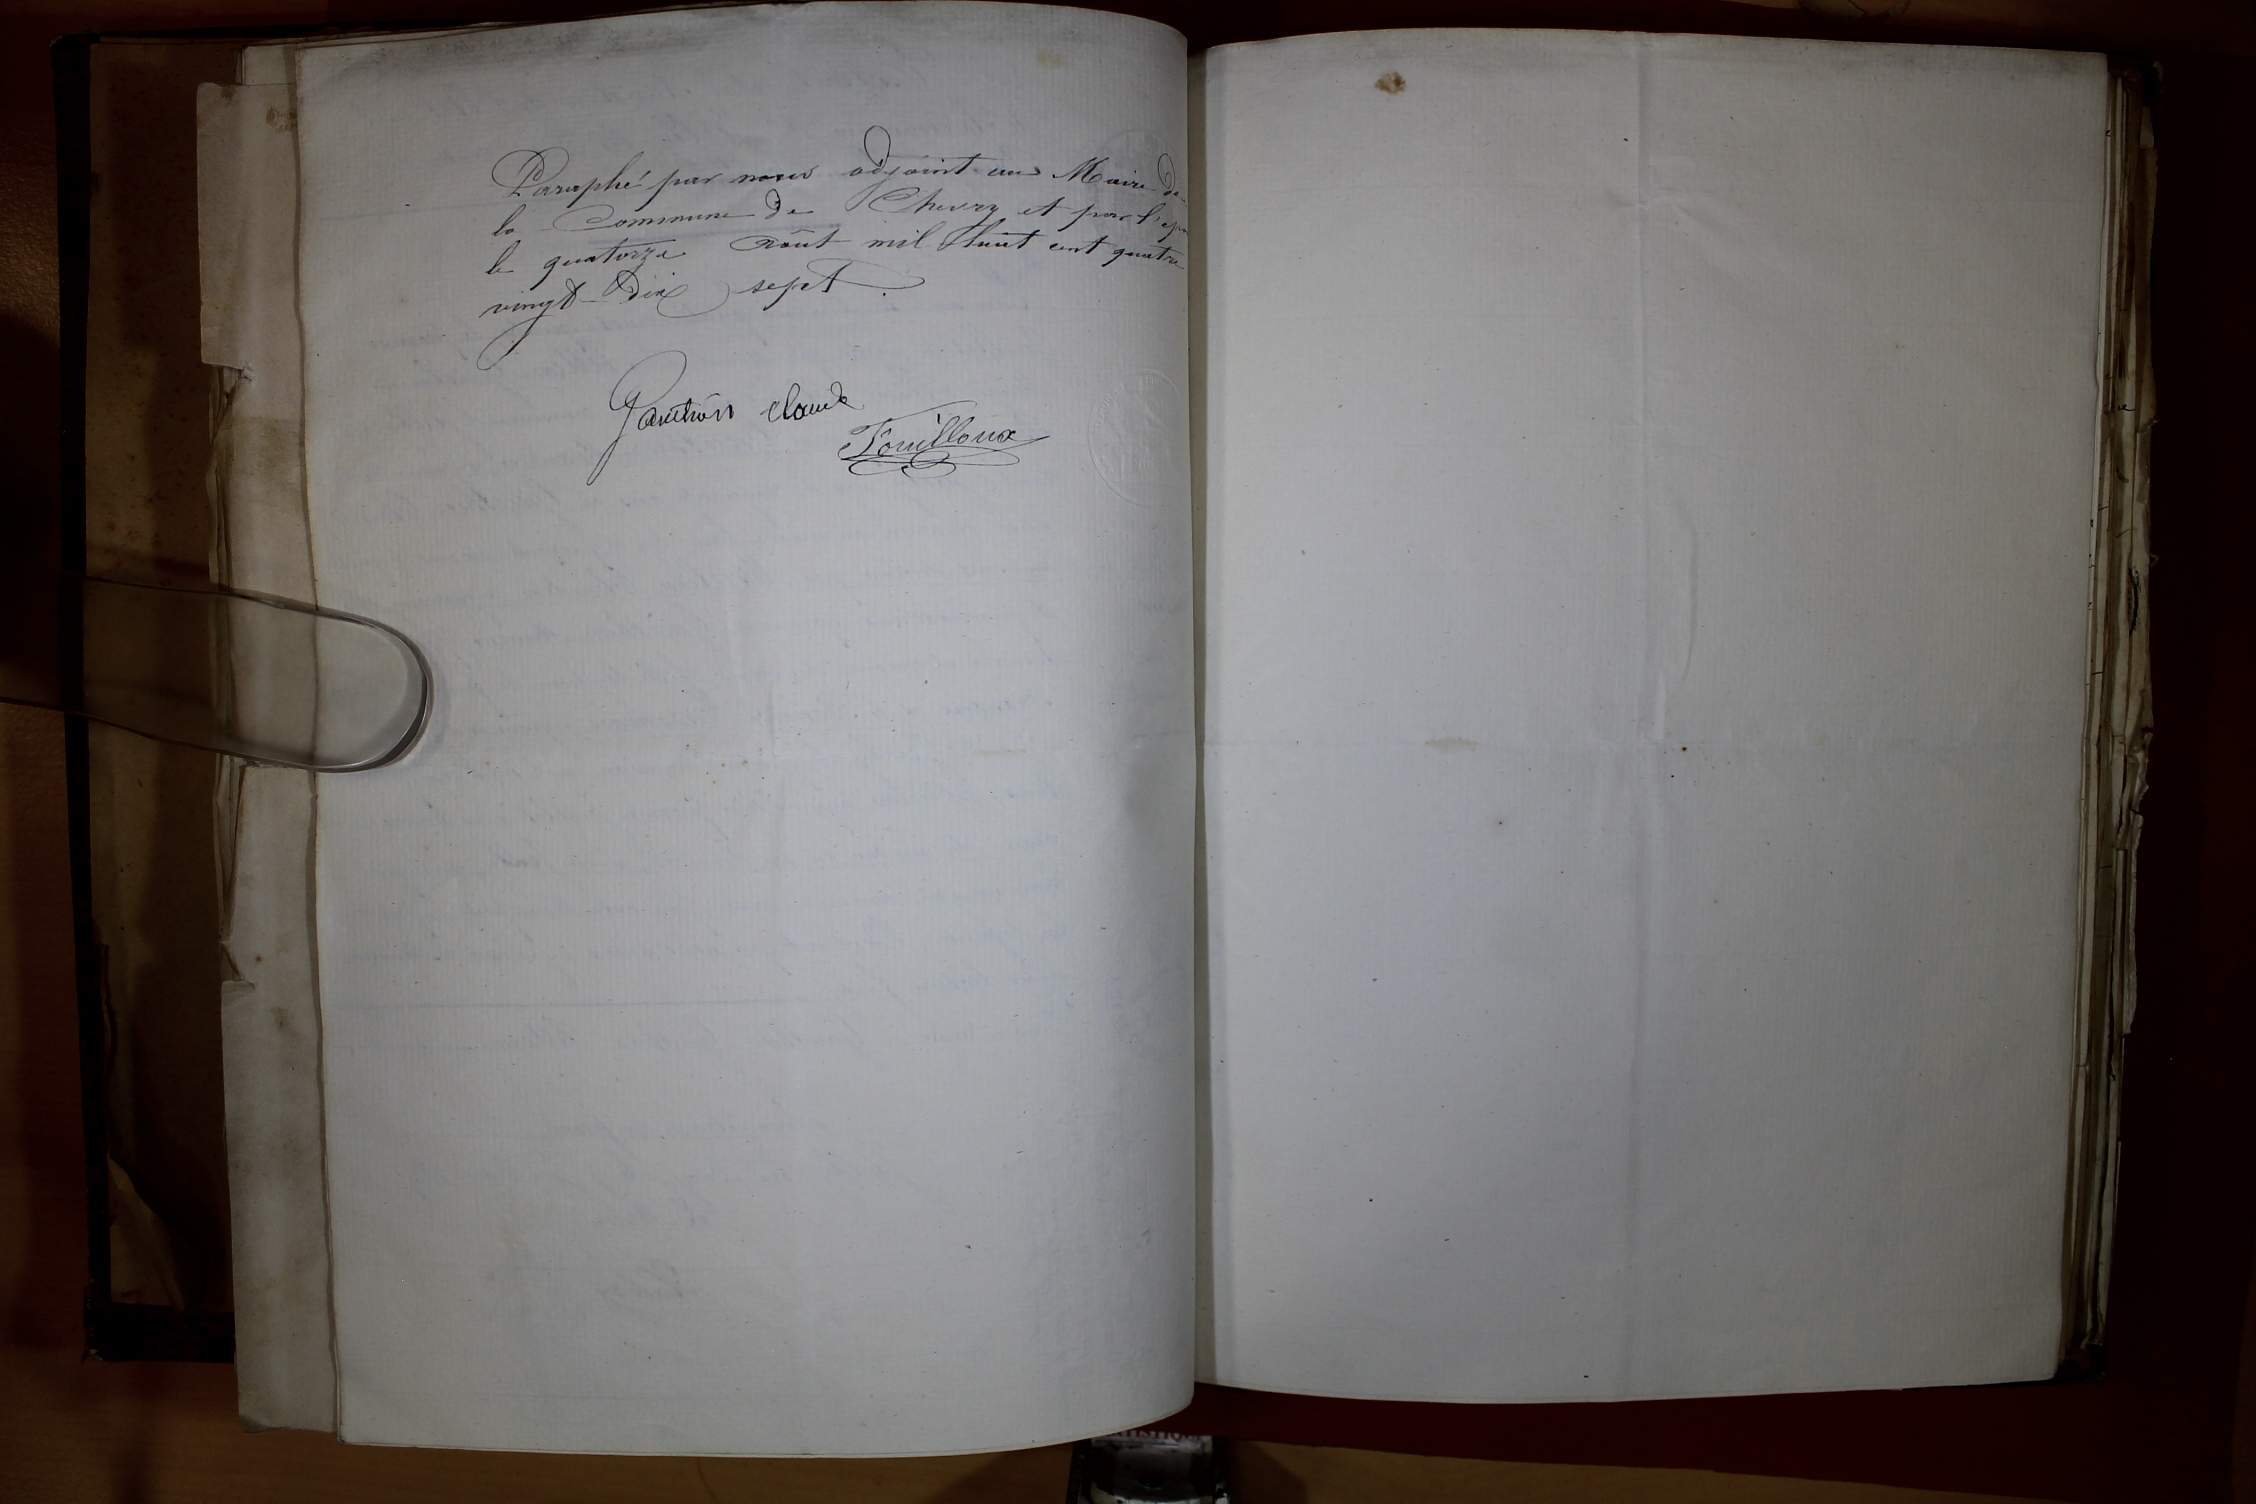 Paraphé par nous adjoint au Maire de
la Commune de Chevry et par
le quatorze Août mil huit cent quatre
vingt dix sept.
Gauthion claude
Fouilloux